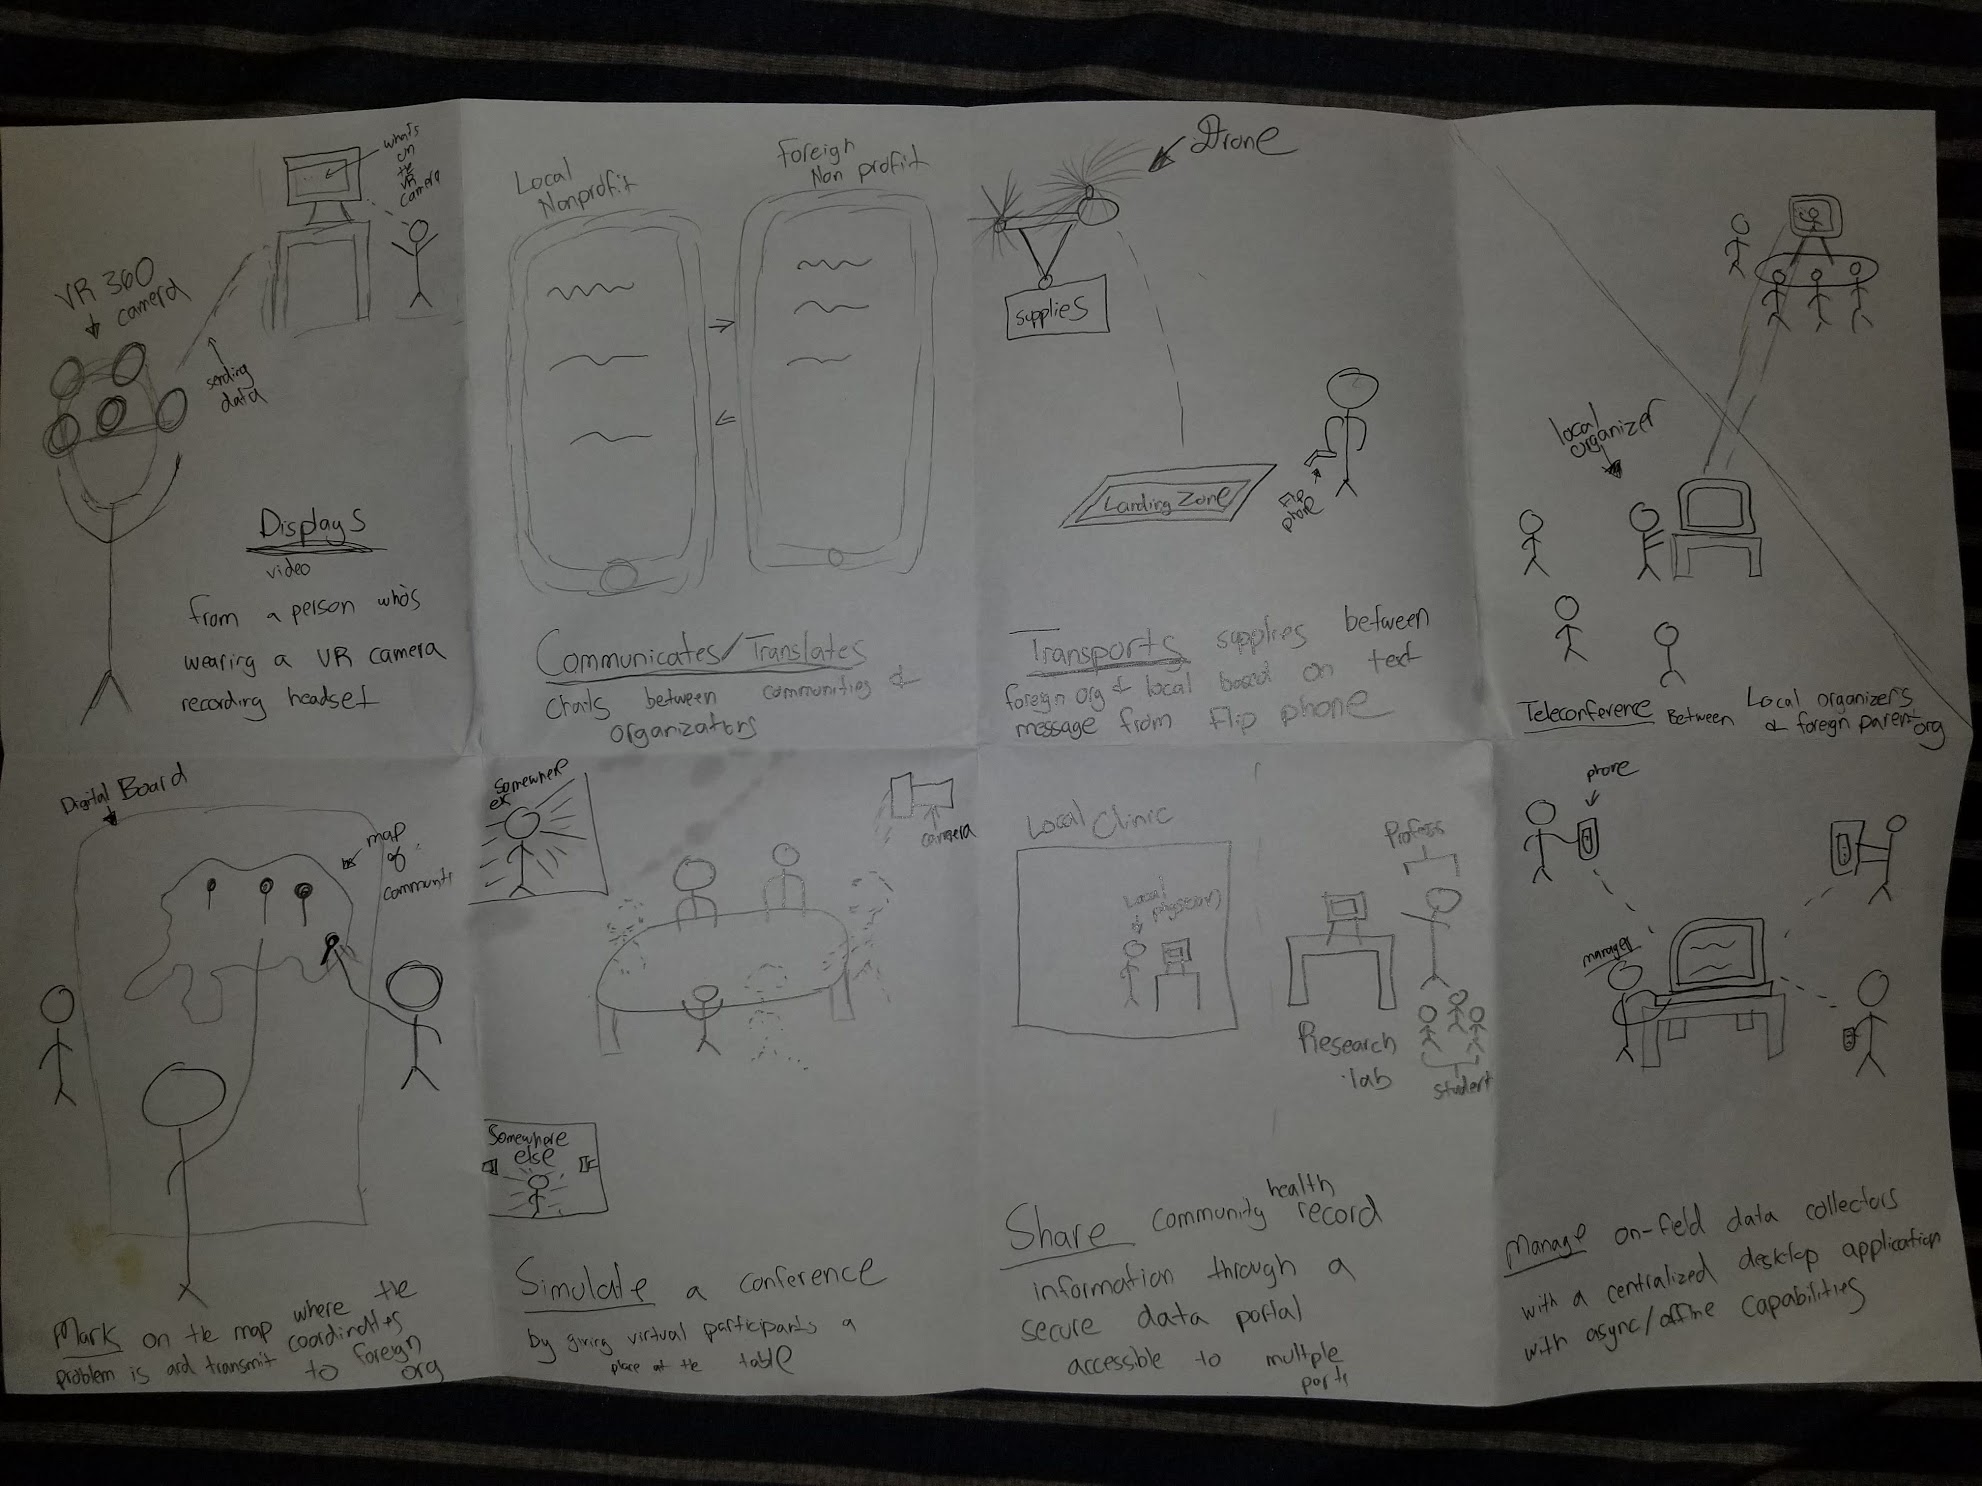 VR 360
camera
sending
data
what's
on
the
VR
camera
Displays
video
from a person who's
wearing a VR camera
recording headset
Local
Nonprofit
Foreign
Non profit
Communicates/Translates
chats between communities &
organizators
Drone
supplies
Landing Zone
Flip
phone
Transports supplies between
foreign org & local based on text
message from Flip phone
local
organizer
Teleconference Between Local organizers
& foregn parent org
Digital Board
map
of
communiti
Mark on the map where the
problem is and transmit coordinates
to foreign
org
Somewhere
camera
Somewhere
else
Simulate a conference
by giving virtual participants a
place at the table
Local Clinic
Local
physician
Profess
Research
lab
student
Share community health record
information through a
secure data portal
accessible to multple
parts
phone
manager
Manage on-field data collectors
with a centralized desktop application
with async/offline capabilities